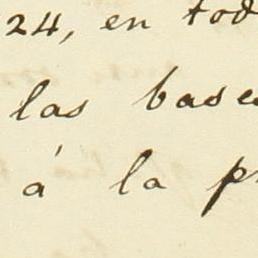 24, en tod
las base
á la p